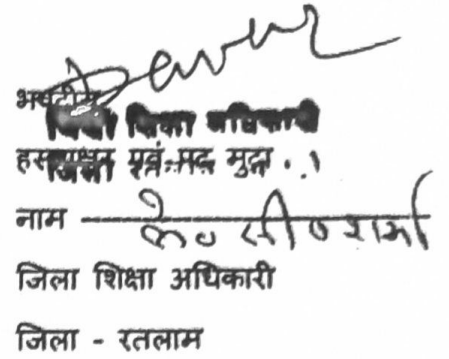 भवदीय
जिला शिक्षा अधिकारी
हस्ताक्षर एवं पद मुद्रा . .
जिला
नाम के० सी० शर्मा
जिला शिक्षा अधिकारी
जिला - रतलाम